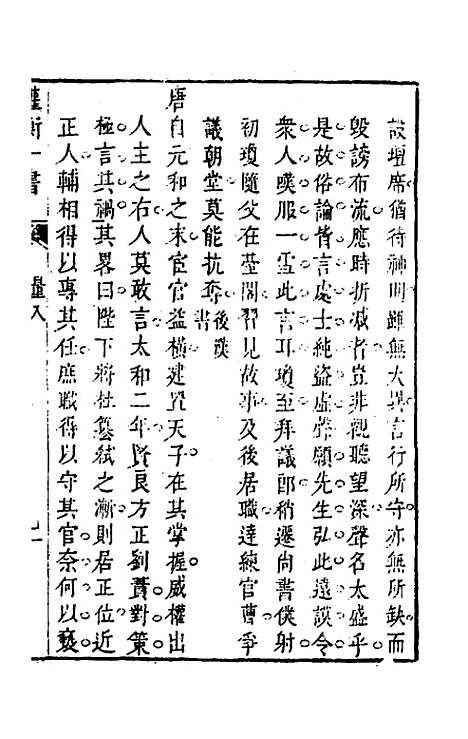 設壇席猶待神明雖無大異言行所守亦無所缺而
毀謗布流應時折減者豈非觀聽望深聲名太盛乎
是故俗論皆言處士純盜虛聲願先生弘此遠謨令
衆人嘆服一雪此言耳瓊至拜議郎稍遷尚書僕射
初瓊隨父在臺閣習見故事及後居職達練官曹爭
議朝堂莫能抗奪後漢書
唐自元和之末宦官益橫建置天子在其掌握威權出
人主之右人莫敢言太和二年賢良方正劉蕡對策
極言其禍其畧曰陛下將杜簒弑之漸則居正位近
正人輔相得以專其任庶職得以守其官奈何以褻
衡一書